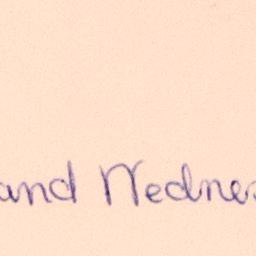 and Wednes